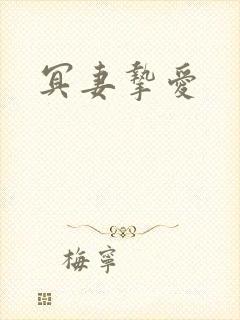 冥妻摯愛
梅寧